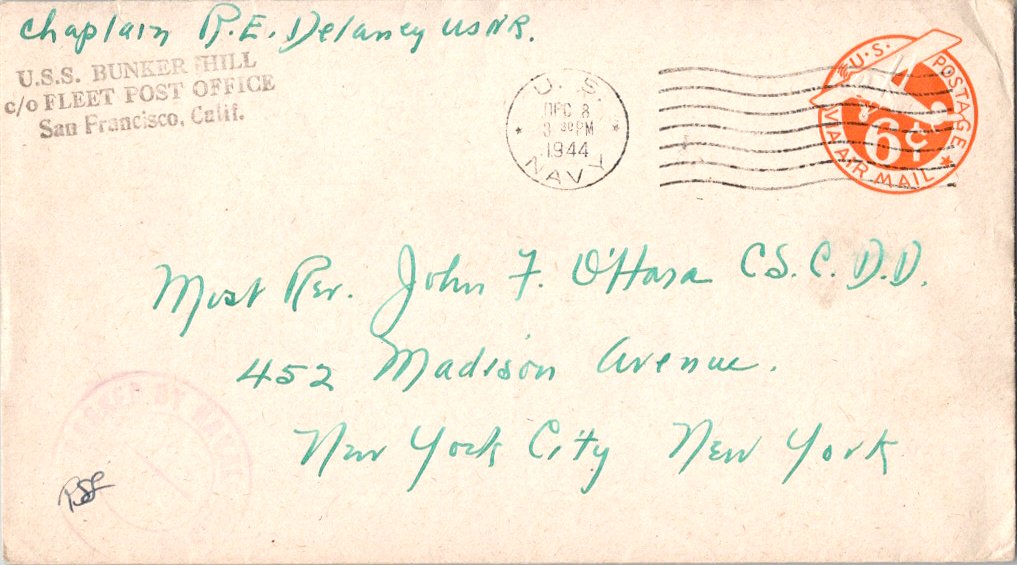 Chaplain R.E. Delaney USNR.
U.S.S. BUNKER HILL
c/o FLEET POST OFFICE
San Francisco, Calif.
U. S.
DEC 8
3 30 PM
1944
NAVY
U.S. POSTAGE
6¢
VIA AIR MAIL
Most Rev. John F. O'Hara C.S.C. D.D.
452 Madison Avenue.
New York City New York
BY